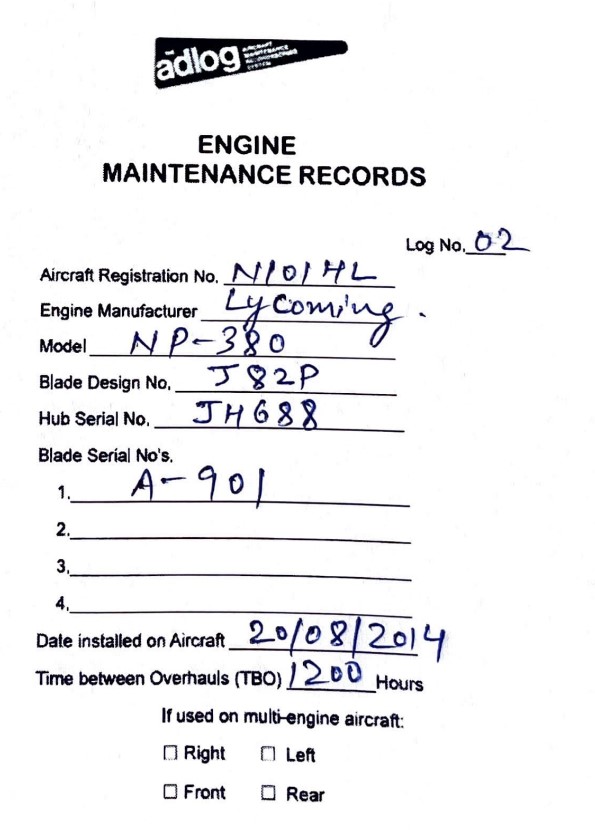 adlog AIRCRAFT
MAINTENANCE
RECORDKEEPING
SYSTEM
ENGINE
MAINTENANCE RECORDS
Log No. 02
Aircraft Registration No. N101HL
Engine Manufacturer Lycoming.
Model NP-380
Blade Design No. J82P
Hub Serial No. JH688
Blade Serial No's.
1. A-901
2.
3.
4.
Date installed on Aircraft 20/08/2014
Time between Overhauls (TBO) 1200 Hours
If used on multi-engine aircraft:
☐ Right ☐ Left
☐ Front ☐ Rear